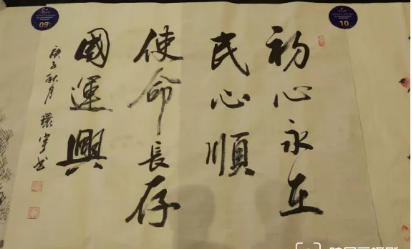 初心永在
民心順
使命長存
國運興
庚子秋月
10
09